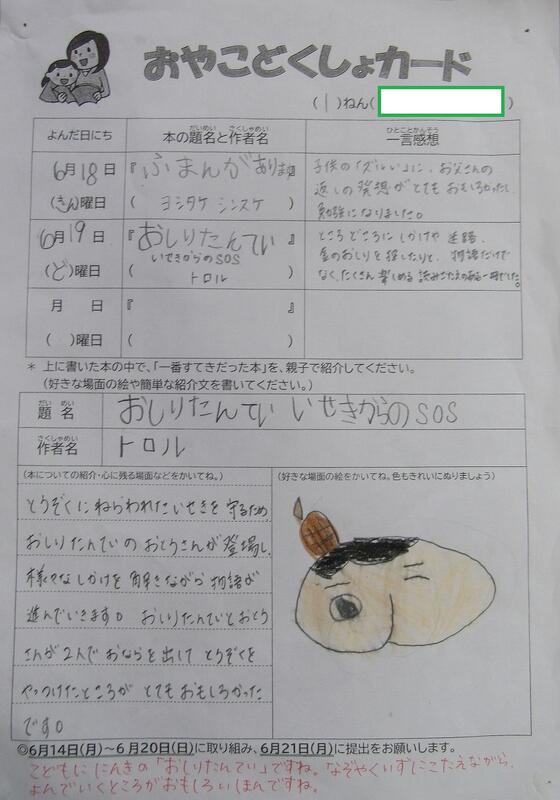 おやこどくしょカード
(1)ねん(　)
よんだ日にち
本の題名と作者名
だいめい さくしゃめい
一言感想
ひとことかんそう
6月18日
(きん)曜日
『ふまんがあります』
(ヨシタケ シンスケ)
子供の「ズルい」に、お父さんの
返しの発想がとてもおもしろかったし
勉強になりました。
6月19日
(ど)曜日
『おしりたんてい』
いせきからのSOS
(トロル)
ところどころにしかけや迷路、
金のおしりを探したりと、物語だけで
なく、たくさん楽しめる読みごたえのある一冊でした。
月 日
( )曜日
『 』
( )
* 上に書いた本の中で、「一番すてきだった本」を、親子で紹介してください。
(好きな場面の絵や簡単な紹介文を書いてください。)
だい めい
題 名
おしりたんてい いせきからのSOS
さくしゃめい
作者名
トロル
(本についての紹介・心に残る場面などをかいてね。)
とうぞくにねらわれたいせきを守るため、
おしりたんていのおとうさんが登場し、
様々なしかけを解きながら物語が
進んでいきます。 おしりたんていとおとう
さんが2人でおならを出してとうぞくを
やっつけたところが とてもおもしろかった
です。
(好きな場面の絵をかいてね。色もきれいにぬりましょう)
◎6月14日(月)~6月20日(日)に取り組み、6月21日(月)に提出をお願いします。
こどもににんきの「おしりたんてい」ですね。なぞやくいずにこたえながら、
よんでいくところがおもしろいほんですね。